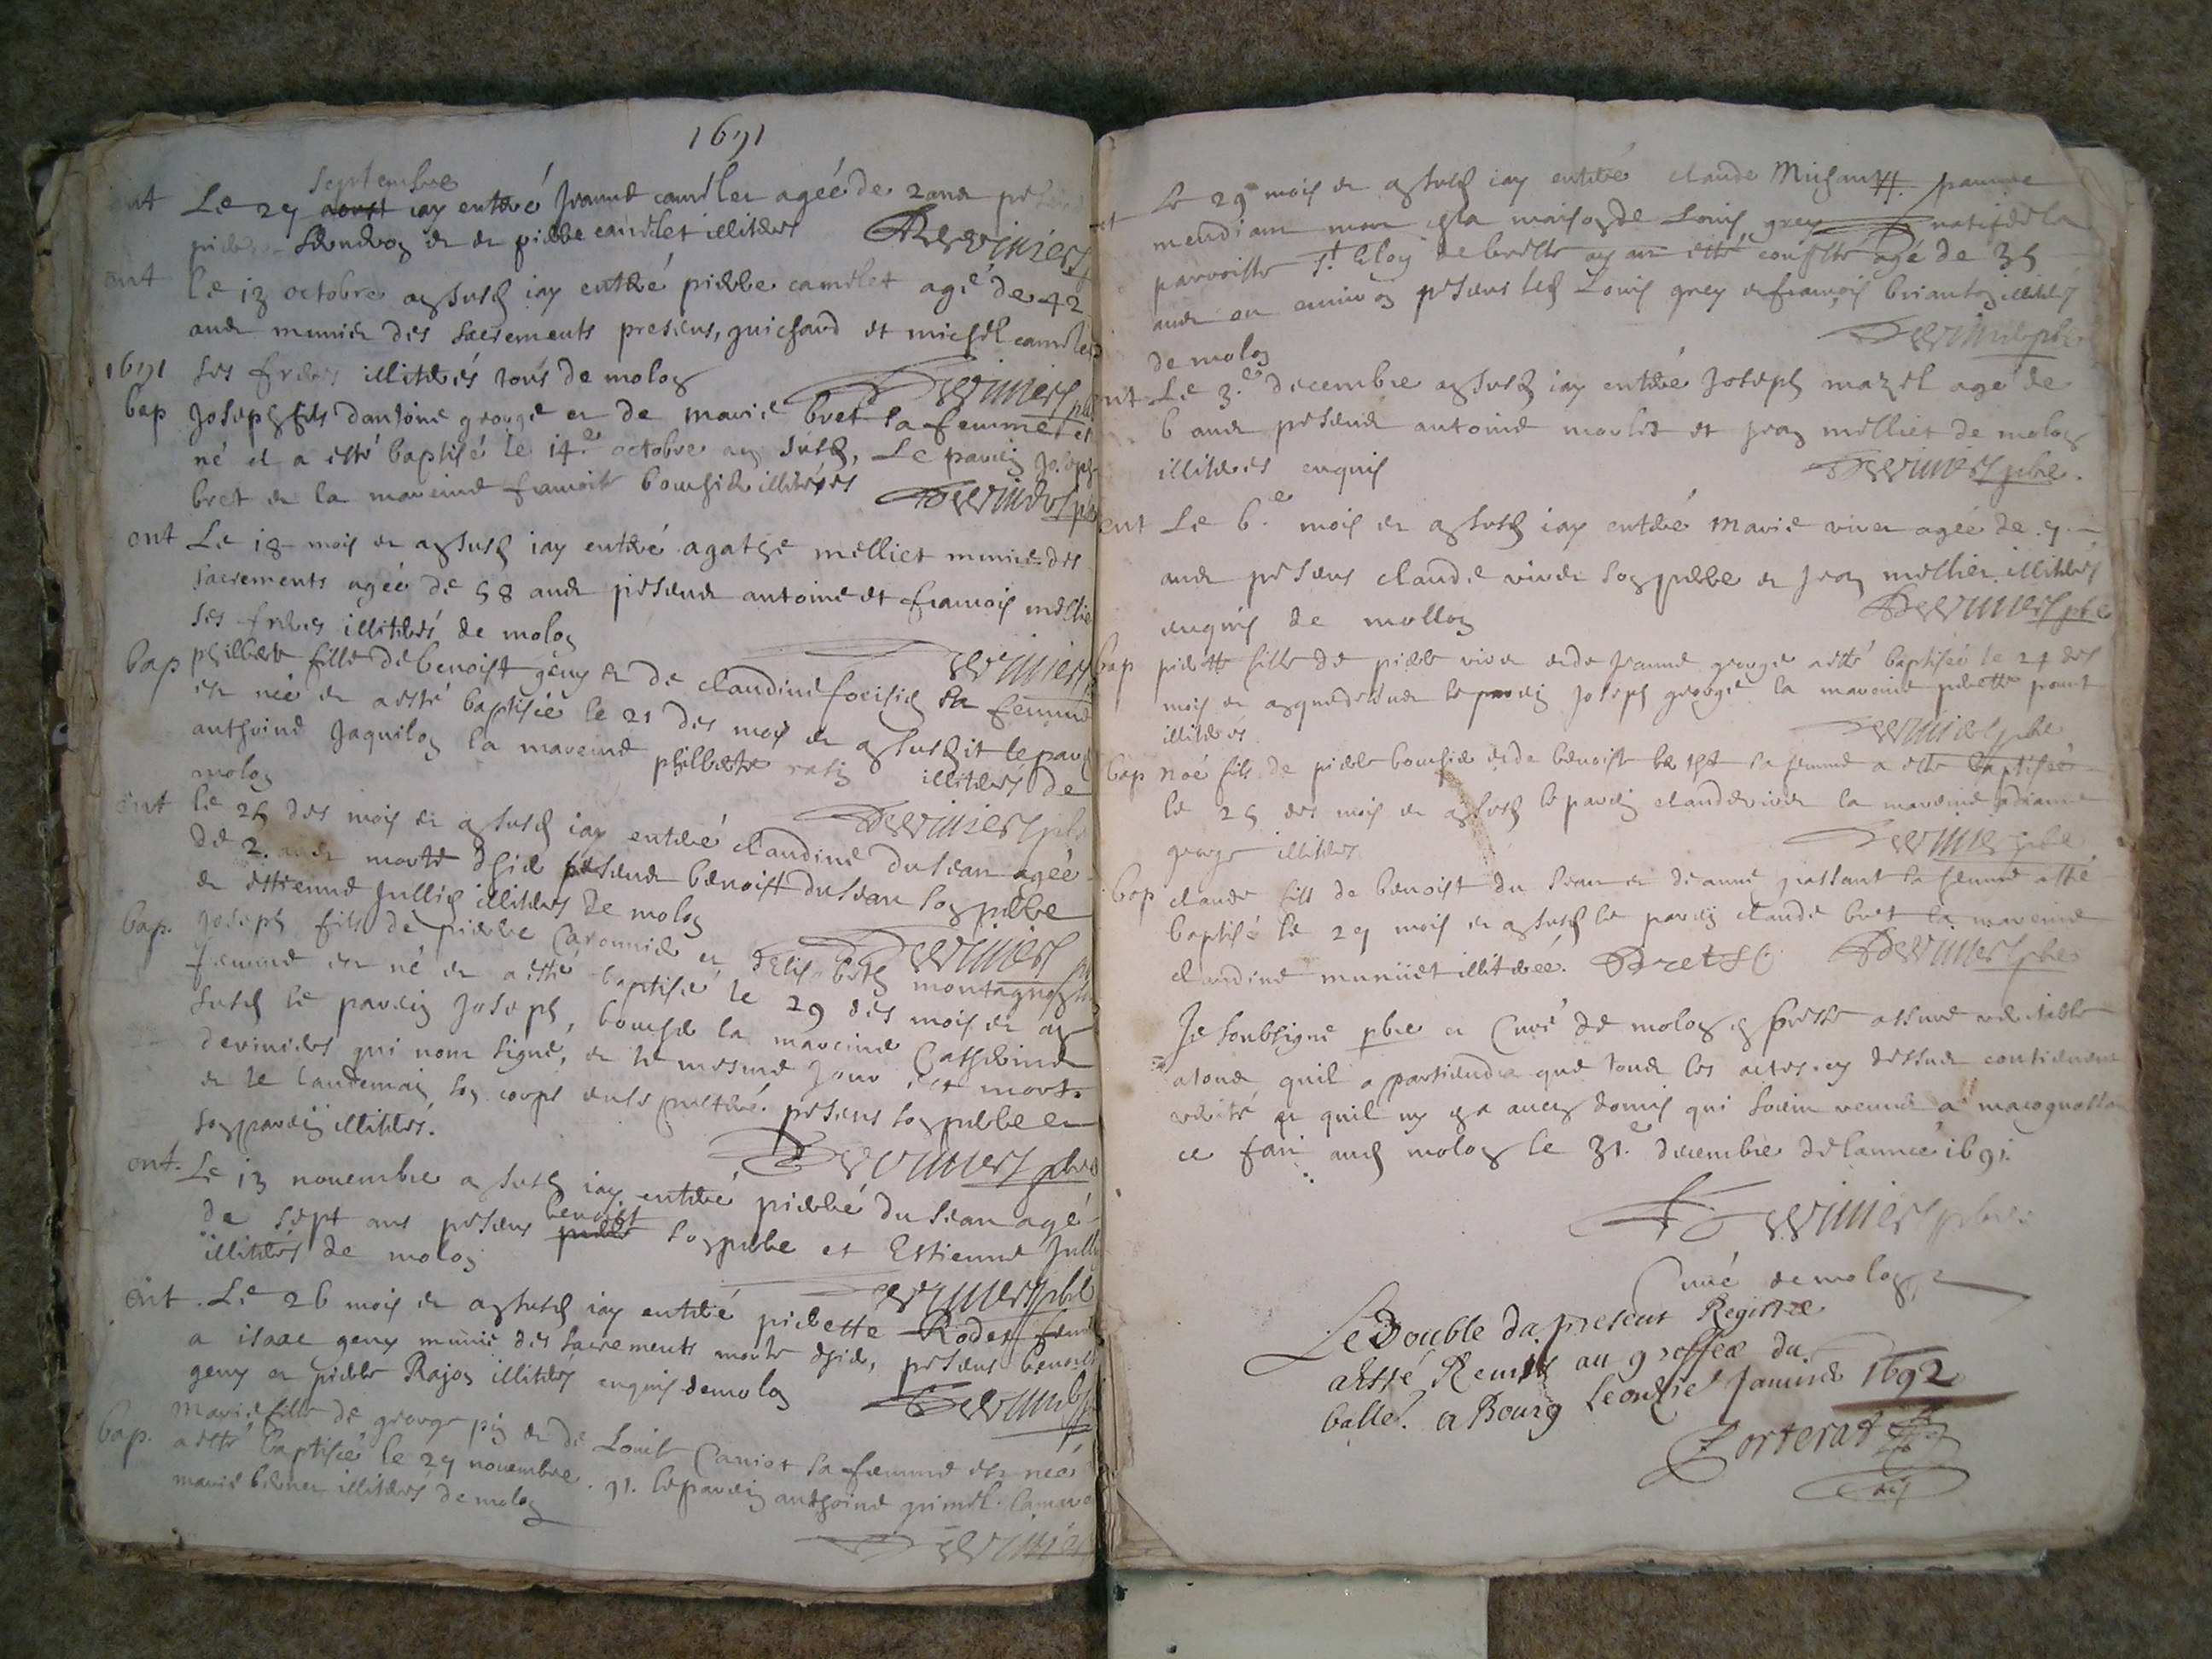 1691
septembre
ent Le 27 aoust iay enterré Jeanne camrlet agée de 2 ans
et de pierre camrlet illiteres Deviniers
ent le 13 octobre an susd iay enterré pierre camrlet agé de 42
ans munier des sacrements presens, guichard et michel camrlet
1691 ses freres illiterés tous de molon Deviniers pbr
bap Joseph fils dantoine george et de marie bret sa femme est
né et a esté baptisé le 14e octobre an susd, Le parein Joseph
bret et la mareine francoise boursier illiterés Deviniers pbr
ent Le 18 mois et an susd iay enterré agathe melliet munie des
sacrements agée de 58 ans presens antoine et francois mellie
ses freres illiterés de molon
Deviniers
bap philberte fille de benoist geny et de claudine sa femme
est née et a esté baptisée le 21 des mois et an susdit le parein
anthoine Jaquilon la mareine philberte illiterés de
molon
Deviniers pbr
ent le 25 des mois et an susd iay enterré claudine du sean agée
de 2 ans morte presens benoist du sean son pere
et estienne Jullin illiterés de molon
Deviniers
bap. Joseph fils de pierre Caronnier et delisabeth montagnon sa
femme est né et a esté baptisé le 29 des mois et an
susd le parein Joseph bourssi la mareine Catherine
deviniers qui nont signé, et le mesme jour est mort
et le landemain son corps ensepulturé. presens son pere et
son parein illiterés.
Deviniers pbr
ent. Le 13 novembre an susd iay enterré pierre du sean agé
benoist
de sept ans presens pierre son pere et Estienne Jullin
illiterés de molon
Deviniers pbr
ent. Le 26 mois et an susd iay enterré pierette Rodet femme
a isaac geny munie des sacrements morte presens benoist
geny et pierre Rajon illiterés enquis de molon
Deviniers
bap. Marie fille de george pin et de Louise Caniot sa femme est née
a esté baptisée le 27 novembre 91. le parein anthoine grimel. la mareine
marie illiterés de molon
Deviniers
ent Le 29 mois et an susd iay enterré claude pauvre
mendiant mort en la maison de Louis grey natif de la
parroisse St Eloy de bresse ayant esté confessé agé de 35
ans ou environ presens led Louis grey et francois brianton illiterés
de molon
Deviniers pbr
ent Le 3e decembre an susd iay enterré Joseph mazel agé de
6 ans presens antoine et Jean melliet de molon
illiterés enquis Deviniers pbr.
ent Le 6e mois et an susd iay enterré Marie viver agée de 7
ans presens claude viver son pere et Jean mellier illiterés
enquis de mollon Deviniers pbr
bap pierette fille de pierre viver et de Jeanne george a esté baptisée le 24 des
mois et an que dessus le parein Joseph george la mareine pierette
illiterés
Deviniers pbr
bap noé fils de pierre boursier et de benoiste sa femme a esté baptisé
le 25 des mois et an susd le parein claude viver la mareine
george illiterés
Deviniers pbr
bap claude fils de benoist du sean et danne grassant sa femme a esté
baptisé le 27 mois et an susd le parein claude bret la mareine
claudine muniiet illiterée. Bret Deviniers pbr
Je soubsigné pbre et Curé de molon en bresse assure veritable
a tous quil apartiendra que tous les actes cy dessus contiennent
verité et quil ny en a aucun domis qui soient venus a ma cognoissan
ce fait aud molon le 31e decembre de lannée 1691.
Deviniers pbre
Curé de molon
Le Double du present Registre
a Esté Remis au greffe du
balle. a Bourg Le onzie Janvier 1692
Corterat